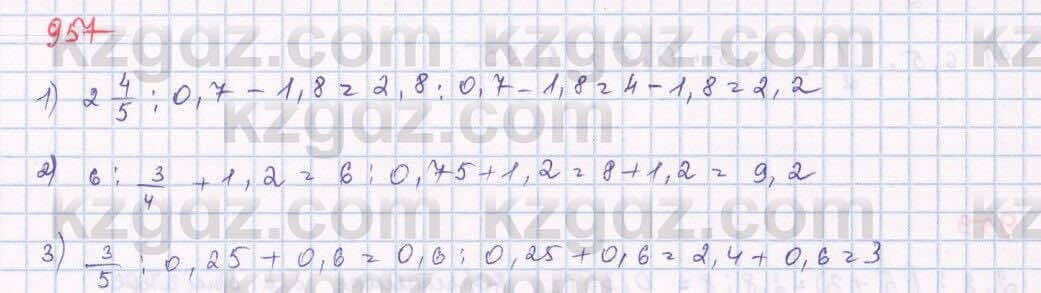 957
kzgdz.com kzgdz.com kz
1) 2 4/5 : 0,7 - 1,8 = 2,8 : 0,7 - 1,8 = 4 - 1,8 = 2,2
kzgdz.com kzgdz.com
2) 6 : 3/4 + 1,2 = 6 : 0,75 + 1,2 = 8 + 1,2 = 9,2
kzgdz.com kzgdz.com kz
3) 3/5 : 0,25 + 0,6 = 0,6 : 0,25 + 0,6 = 2,4 + 0,6 = 3